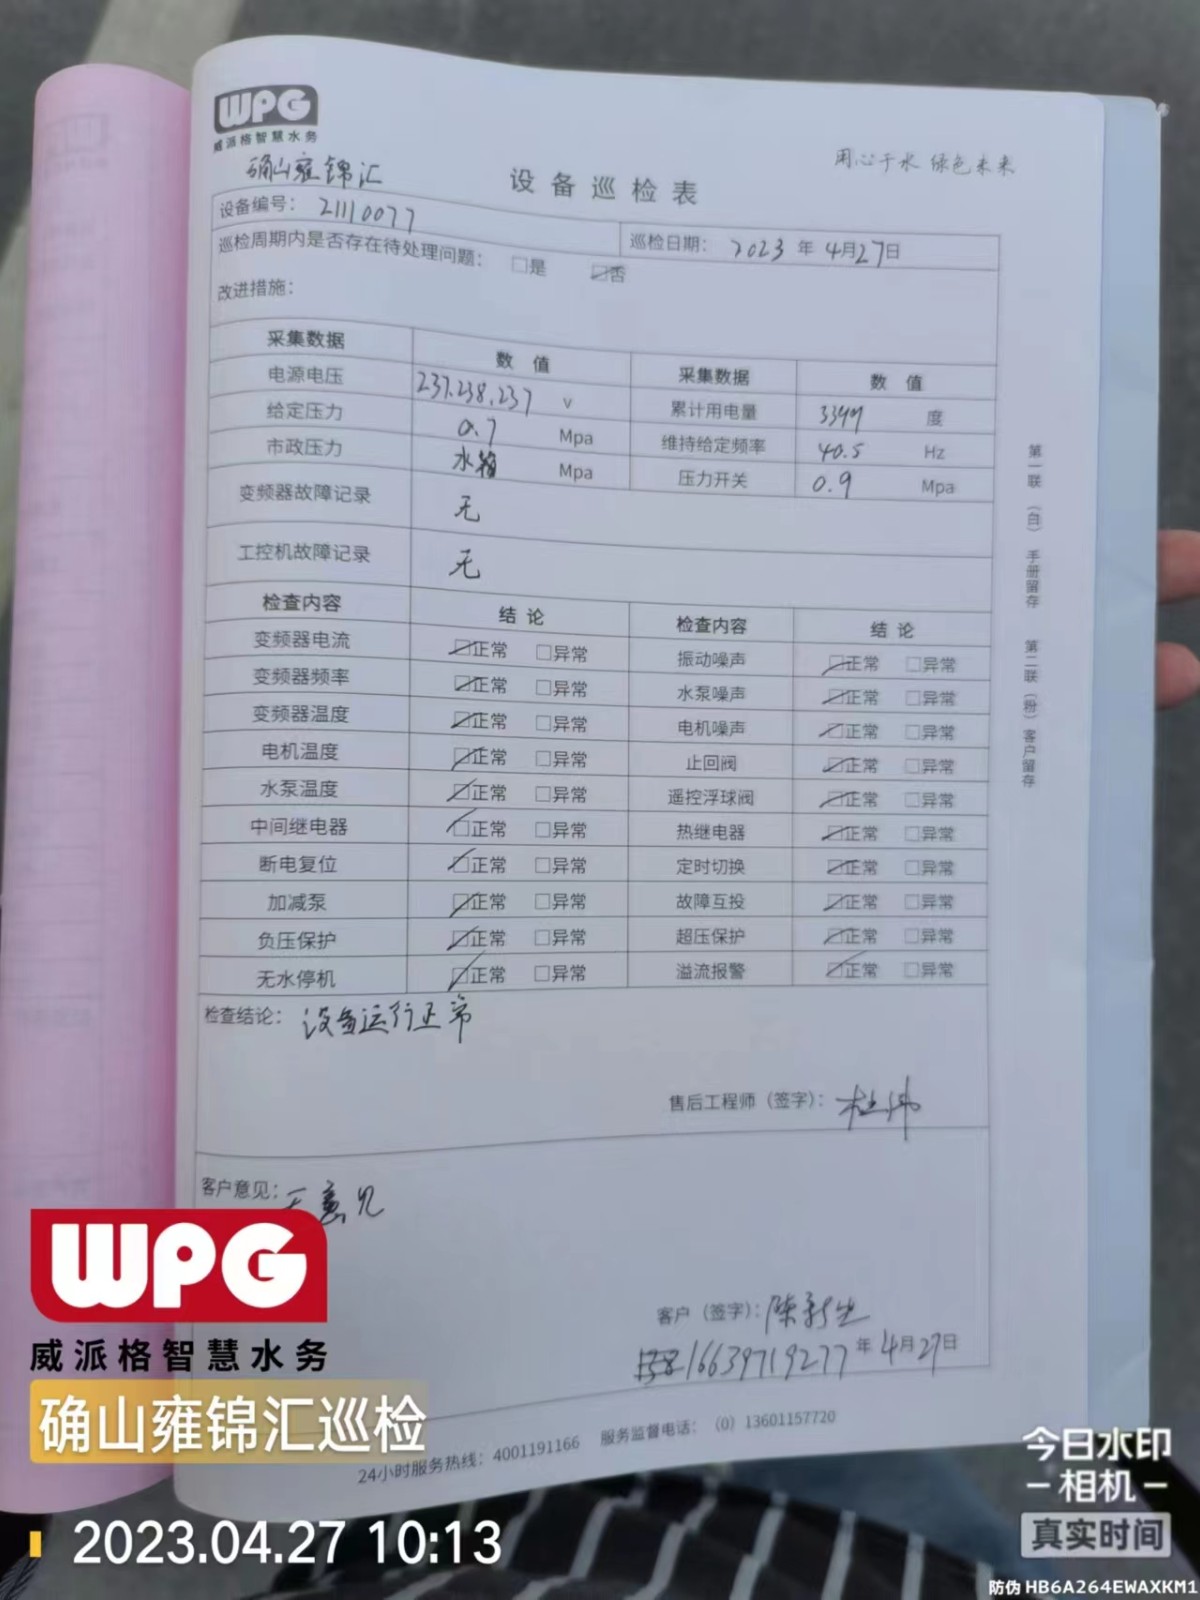 WPG
威派格智慧水务
用心于水 绿色未来
确山雍锦汇
设备巡检表
设备编号： 21110077
巡检日期： 2023 年 4月27日
巡检周期内是否存在待处理问题： □是 ☑否
改进措施：
采集数据 数 值 采集数据 数 值
电源电压 237.238.237 V 累计用电量 度
给定压力 0.7 Mpa 维持给定频率 40.5 Hz
市政压力 水箱 Mpa 压力开关 0.9 Mpa
变频器故障记录 无
工控机故障记录 无
检查内容 结 论 检查内容 结 论
变频器电流 ☑正常 □异常 振动噪声 ☑正常 □异常
变频器频率 ☑正常 □异常 水泵噪声 ☑正常 □异常
变频器温度 ☑正常 □异常 电机噪声 ☑正常 □异常
电机温度 ☑正常 □异常 止回阀 ☑正常 □异常
水泵温度 ☑正常 □异常 遥控浮球阀 ☑正常 □异常
中间继电器 ☑正常 □异常 热继电器 ☑正常 □异常
断电复位 ☑正常 □异常 定时切换 ☑正常 □异常
加减泵 ☑正常 □异常 故障互投 ☑正常 □异常
负压保护 ☑正常 □异常 超压保护 ☑正常 □异常
无水停机 ☑正常 □异常 溢流报警 ☑正常 □异常
检查结论： 设备运行正常
售后工程师（签字）： 杜伟
客户意见： 无意见
客户（签字）： 陈新生
16639719277 年 4月27日
24小时服务热线：4001191166 服务监督电话：（0）13601157720
第一联（白）手册留存 第二联（粉）客户留存
WPG
威派格智慧水务
确山雍锦汇巡检
2023.04.27 10:13
今日水印
－相机－
真实时间
防伪 HB6A264EWAXKM1